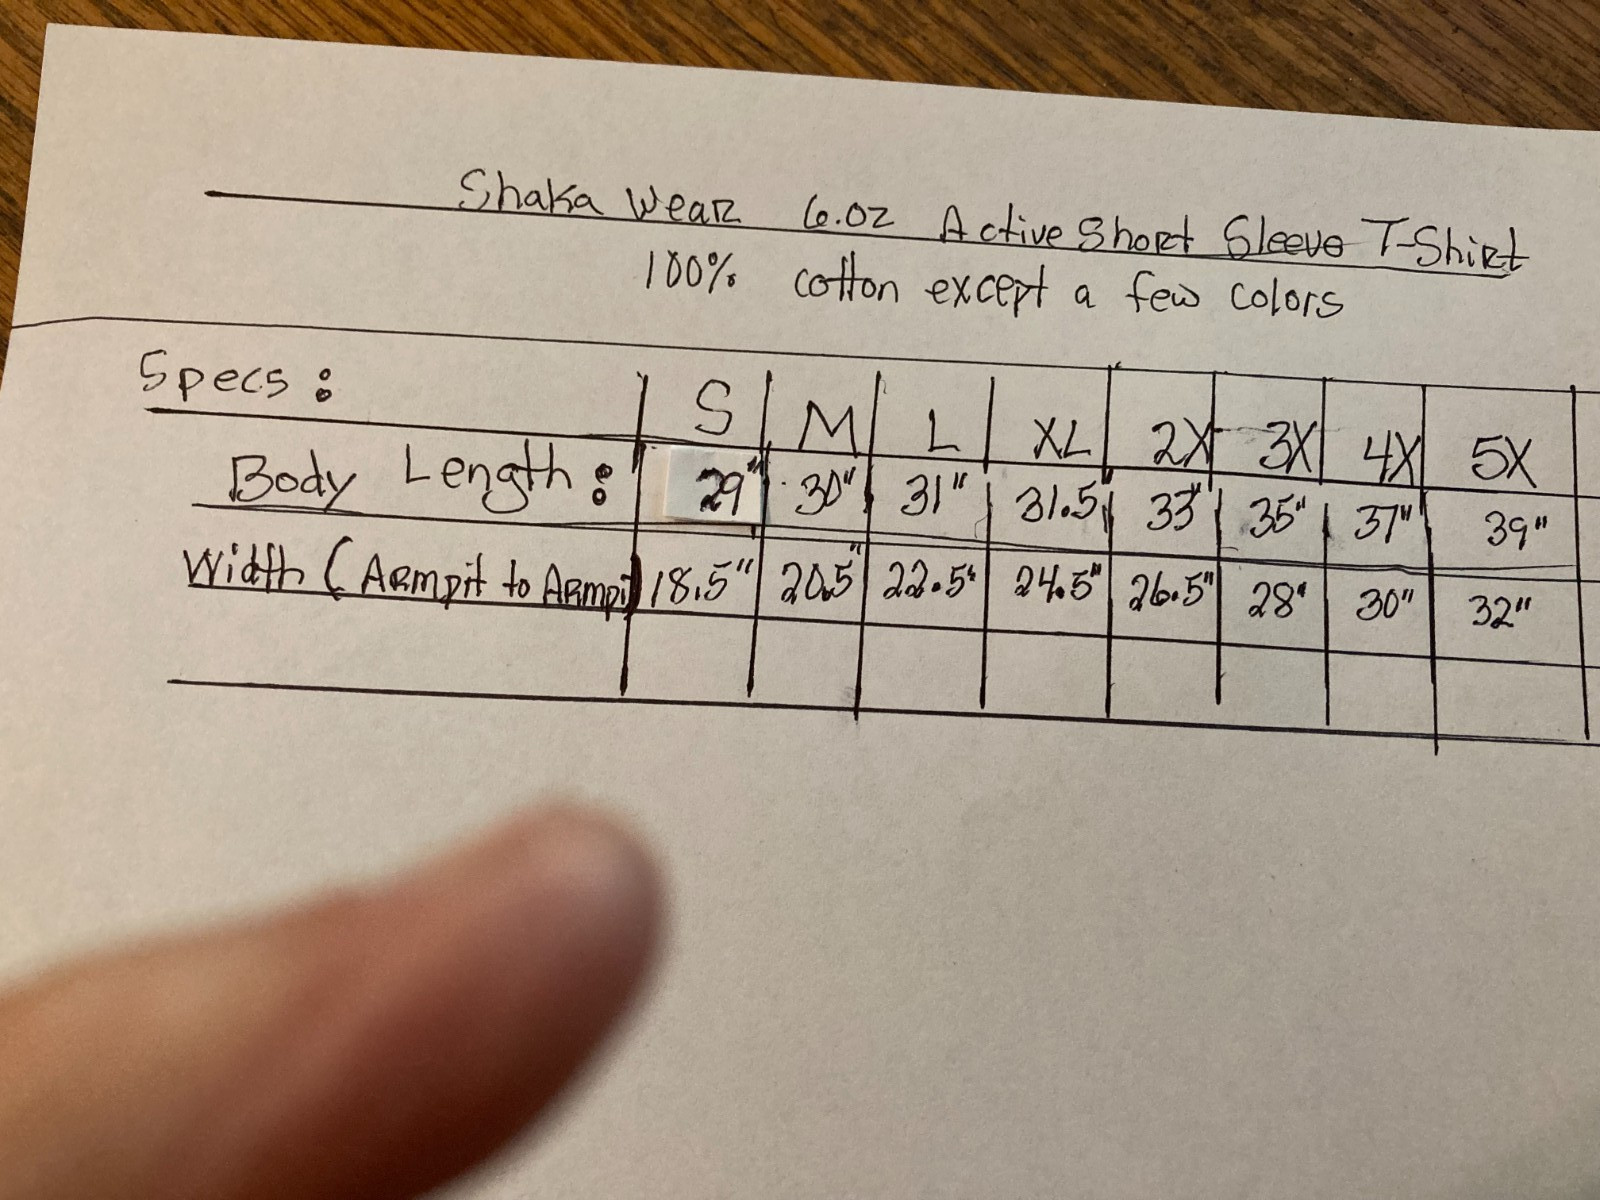 Shaka Wear 6.0z Active Short Sleeve T-Shirt
100% cotton except a few colors
Specs: S M L XL 2X 3X 4X 5X
Body Length: 29" 30" 31" 31.5 33" 35" 37" 39"
Width (Armpit to Armpit) 18.5" 20.5" 22.5" 24.5" 26.5" 28" 30" 32"